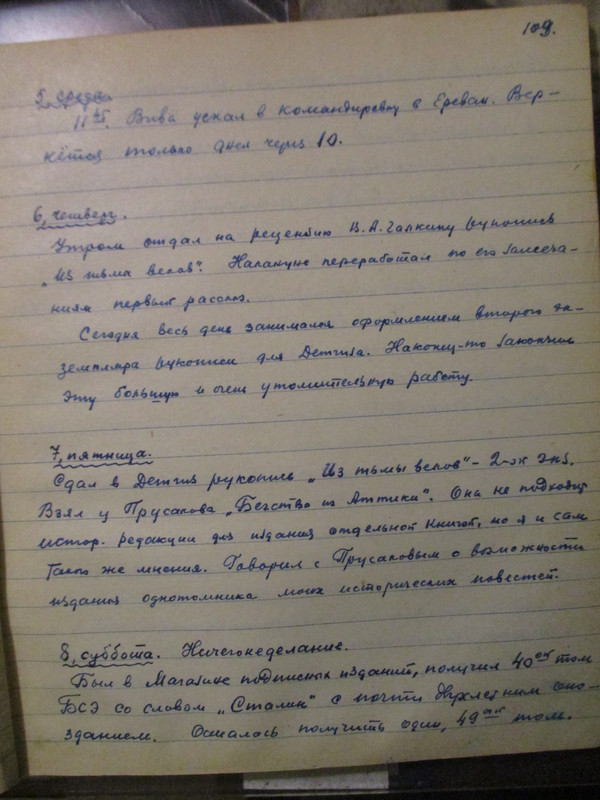 109.
5, среда
11 45. Вива уехал в командировку в Ереван. Вер-
нётся только дней через 10.
6, четверг.
Утром отдал на рецензию В. А. Галкину рукопись
„Из тьмы веков“. Накануне переработал по его замеча-
ниям первый рассказ.
Сегодня весь день занимался оформлением второго эк-
земпляра рукописи для Детгиза. Наконец-то закончил
эту большую и очень утомительную работу.
7, пятница.
Сдал в Детгиз рукопись „Из тьмы веков“ – 2-ой экз.
Взял у Прусакова „Бегство из Аттики“. Она не подходит
истор. редакции для издания отдельной книгой, но я и сам
такого же мнения. Говорил с Прусаковым о возможности
издания однотомника моих исторических повестей.
8, суббота. Ничегонеделание.
Был в Магазине подписных изданий, получил 40ой том
БСЭ со словом „Сталин“ с почти двухлетним опо-
зданием. Осталось получить один, 49ый том.